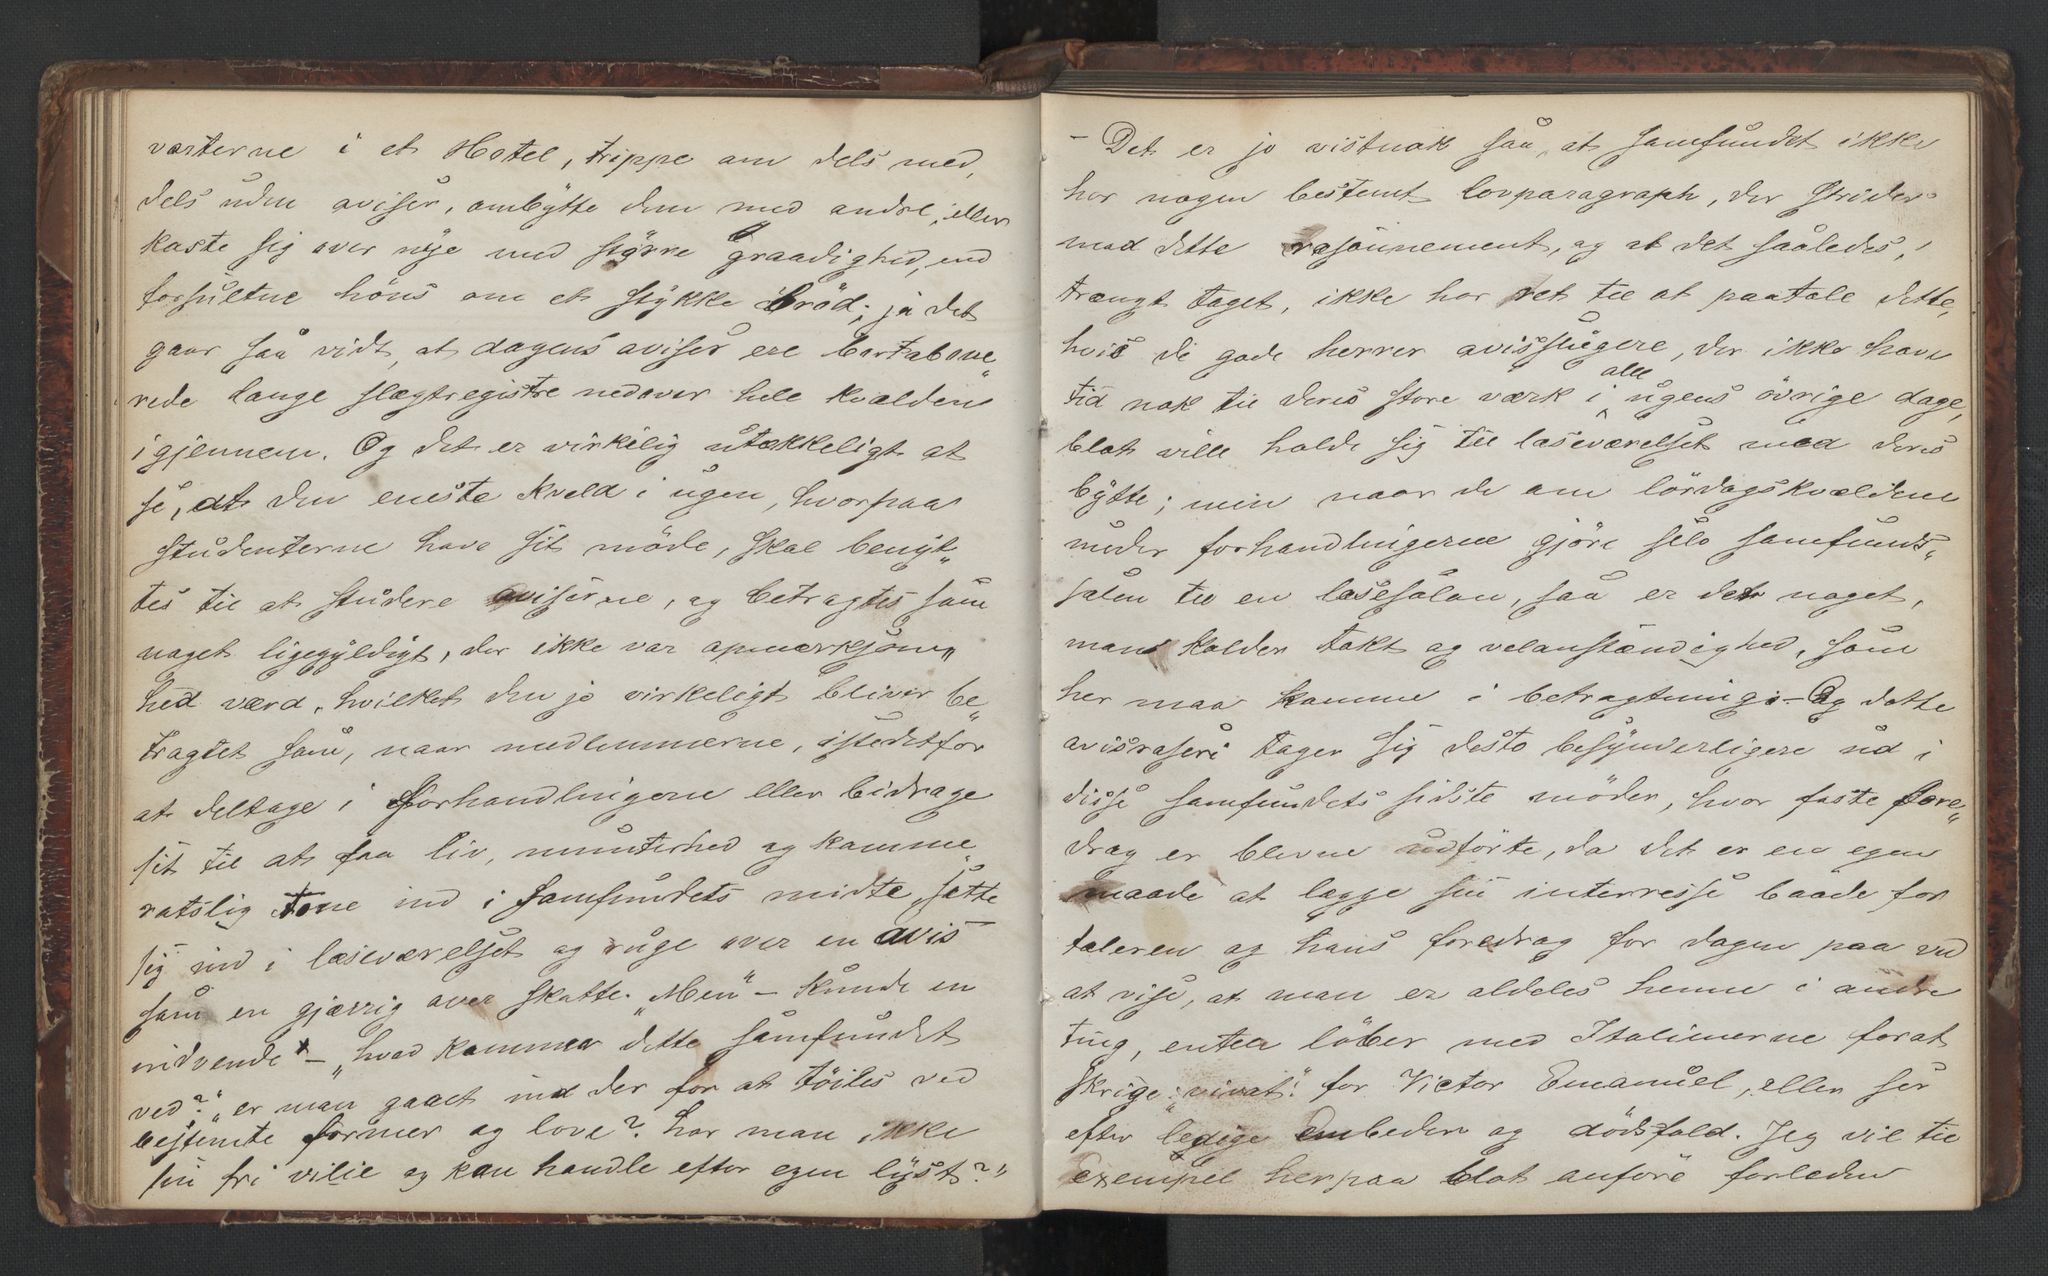 værterne i et Hotel, trippe om dels med,
dels uden aviser, ombytte dem med andre, eller
kaste sig over nye med større graadighed, end
forsultne høns om et stykke brød; ja det
gaar saa vidt, at dagens aviser ere bortabone„
rede lange slægtregistre nedover hele kvælden
igjennem. Og det er virkelig utækkeligt at
se, at den eneste kveld i ugen, hvorpaa
studenterne have sit møde, skal benyt„
tes til at studere aviserne, og betragtes som
noget ligegyldigt, der ikke var opmærksom„
hed værd, hvilket den jo virkeligt bliver be„
tragtet som, naar medlemmerne, istedetfor
at deltage i forhandlingerne eller bidrage
sit til at faa liv, munterhed og kamme„
ratslig tone ind i samfundets midte, sætte
sig ind i læseværelset og ruge over en avis
som en gjærrig over skatte. „Men“ – kunde en
indvende – „hvad kommer dette samfundet
ved?“ „er man gaaet ind der for at tøiles ved
bestemte former og love? har man ikke
sin fri vilie og kan handle efter egen lyst?“
– Det er jo vistnok saa, at samfundet ikke
har nogen bestemt lovparagraph, der strider
mod dette rasonnement, og at det saaledes,
trængt taget, ikke har ret til at paatale dette,
hvis de gode herrer avisslugere, der ikke have
tid nok til deres store værk i alle ugens øvrige dage,
blot ville holde sig til læseværelset med deres
bytte; men naar de om lørdagskvældene
under forhandlingerne gjøre selv samfunds„
salen til en læsesalon, saa er det noget,
man kalder takt og velanstændighed, som
her maa komme i betragtning. – Og dette
avisraseri tager sig desto besynderligere ud i
disse samfundets sidste møder, hvor faste fore„
drag er blevne udførte, da det er en egen
maade at lægge sin interresse baade for
taleren og hans foredrag for dagen paa ved
at vise, at man er aldeles henne i andre
ting, enten løber med Italienerne forat
skrige „vivat“ for Victor Emanuel, eller ser
efter ledige embeder og dødsfald. Jeg vil til
exempel herpaa blot anføre forleden